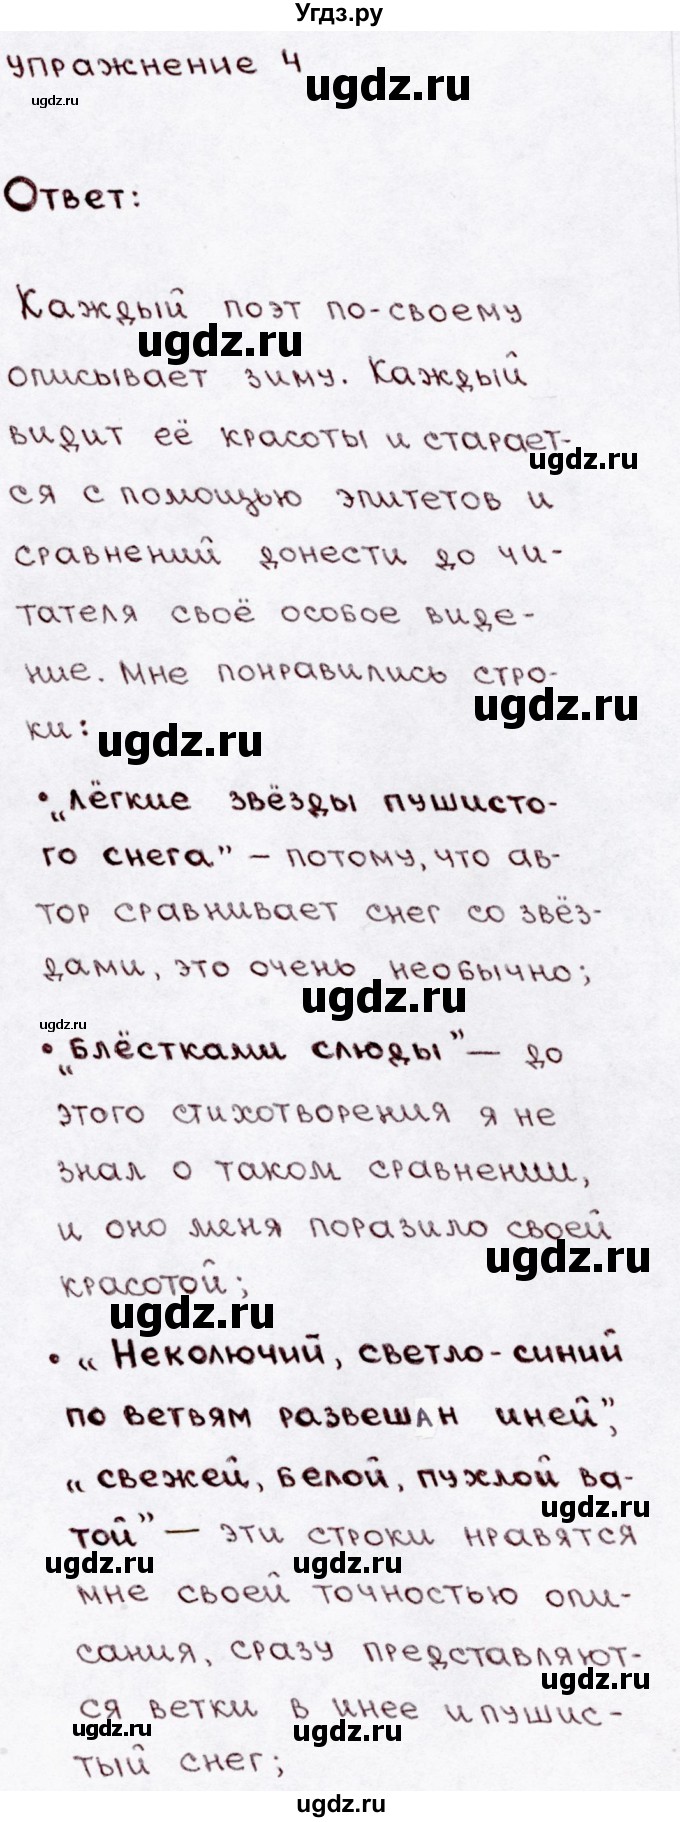 Угдз.ру
упражнение 4
ugdz.ru
ugdz.ru
Ответ:
Каждый поэт по-своему
ugdz.ru
описывает зиму. Каждый
видит её красоты и старает-
ugdz.ru
ся с помощью эпитетов и
сравнений донести до чи-
тателя своё особое виде-
ние. Мне понравились стро-
ugdz.ru
ки:
ugdz.ru
• „Лёгкие звёзды пушисто-
го снега” – потому, что ав-
тор сравнивает снег со звёз-
дами, это очень необычно;
ugdz.ru
ugdz.ru
• „Блёстками слюды” – до
этого стихотворения я не
знал о таком сравнении,
и оно меня поразило своей
ugdz.ru
красотой;
ugdz.ru
• „Неколючий, светло-синий
по ветвям развешан иней”,
„свежей, белой, пухлой ва-
ugdz.ru
той” – эти строки нравятся
ugdz.ru ugdz.ru
мне своей точностью опи-
сания, сразу представляют-
ugdz.ru
ся ветки в инее и пушис-
ugdz.ru ugdz.ru
тый снег;
ugdz.ru